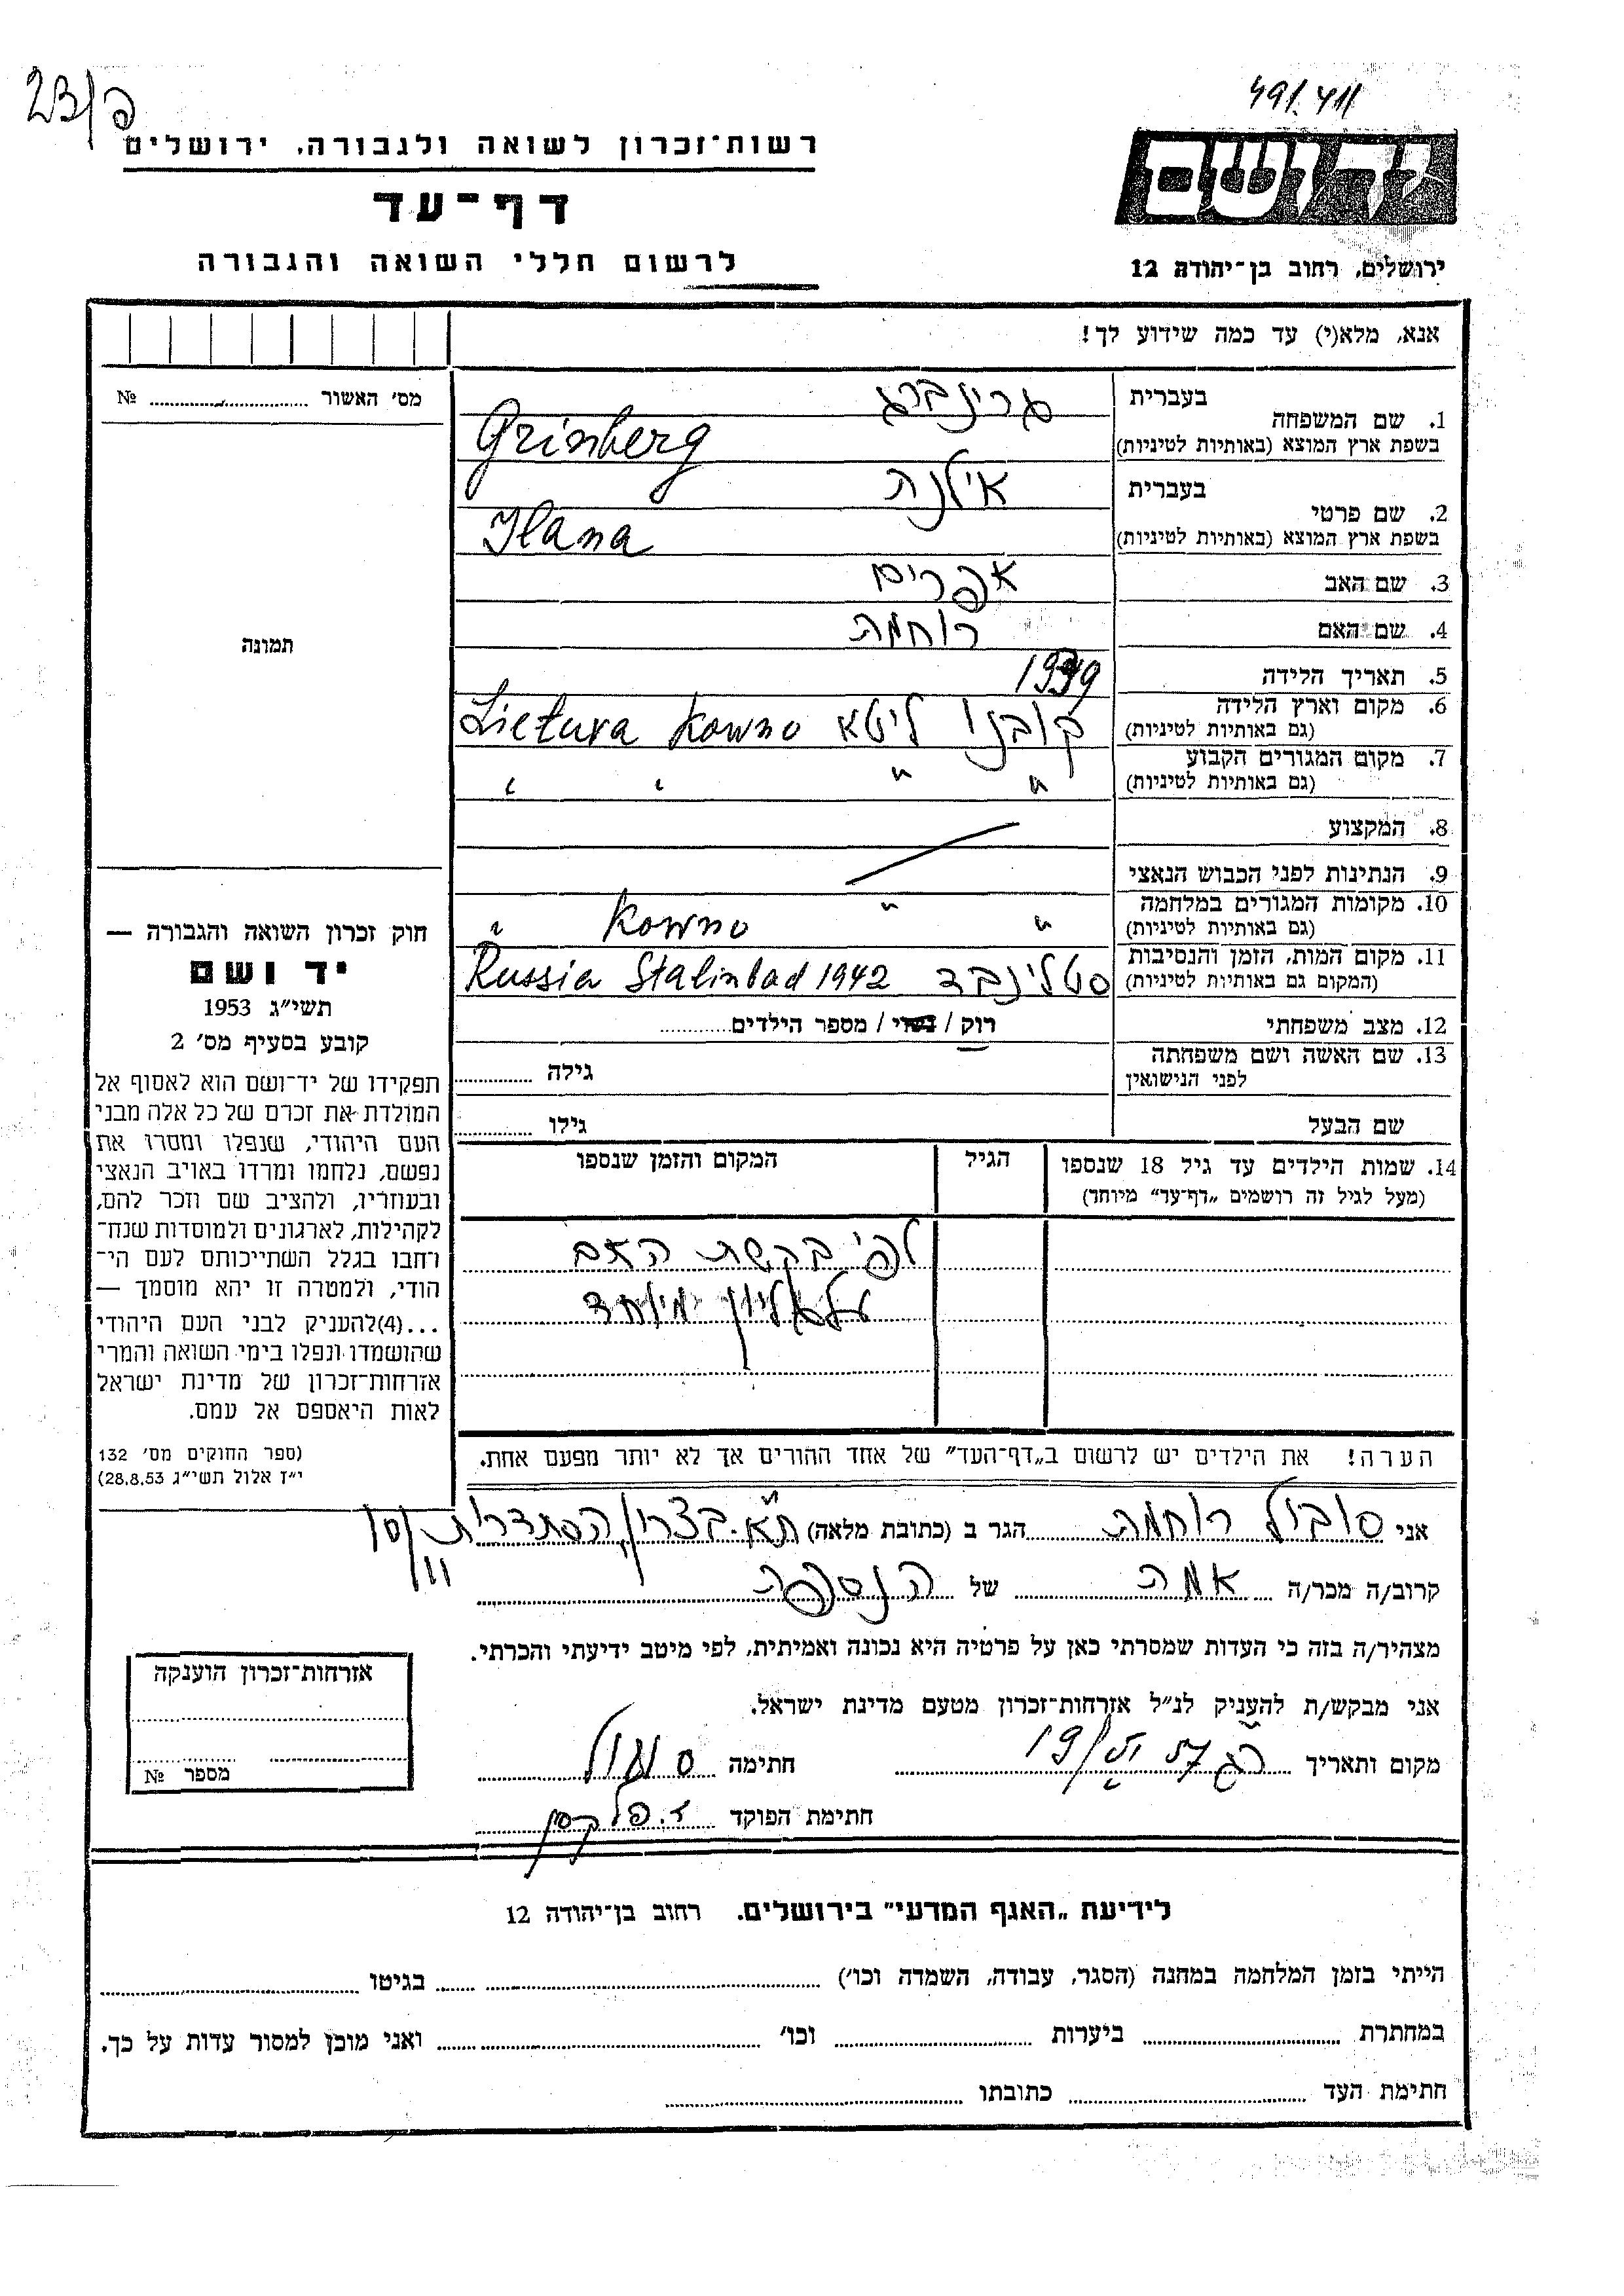 פ/23
491/411
רשות־זכרון לשואה ולגבורה, ירושלים
דף־עד
לרשום חללי השואה והגבורה
יד ושם
ירושלים, רחוב בן־יהודה 12
אנא, מלא(י) עד כמה שידוע לך!
מס׳ האשור № ........
תמונה
1. שם המשפחה
בעברית גרינברג
בשפת ארץ המוצא (באותיות לטיניות) Grinberg
2. שם פרטי
בעברית אילנה
בשפת ארץ המוצא (באותיות לטיניות) Ilana
3. שם האב אפרים
4. שם האם רוחמה
5. תאריך הלידה 1939
6. מקום וארץ הלידה קובנו ליטא Kowno Lietuva
(גם באותיות לטיניות)
7. מקום המגורים הקבוע " " " "
(גם באותיות לטיניות)
8. המקצוע
9. הנתינות לפני הכבוש הנאצי
10. מקומות המגורים במלחמה " " Kowno "
(גם באותיות לטיניות)
11. מקום המות, הזמן והנסיבות סטלינבד Russia Stalinbad 1942
(המקום גם באותיות לטיניות)
12. מצב משפחתי רוק / נשוי / מספר הילדים........
13. שם האשה ושם משפחתה גילה ........
לפני הנישואין
שם הבעל גילו ........
14. שמות הילדים עד גיל 18 שנספו הגיל המקום והזמן שנספו
(מעל לגיל זה רושמים „דף־עד" מיוחד)
לפי בקשת האב
על גליון מיוחד
הערה! את הילדים יש לרשום ב„דף־העד" של אחד ההורים אך לא יותר מפעם אחת.
חוק זכרון השואה והגבורה —
יד ושם
תשי״ג 1953
קובע בסעיף מס׳ 2
תפקידו של יד־ושם הוא לאסוף אל
המולדת את זכרם של כל אלה מבני
העם היהודי, שנפלו ומסרו את
נפשם, נלחמו ומרדו באויב הנאצי
ובעוזריו, ולהציב שם וזכר להם,
לקהילות, לארגונים ולמוסדות שנח־
רחבו בגלל השתייכותם לעם הי־
הודי, ולמטרה זו יהא מוסמך —
...(4)להעניק לבני העם היהודי
שהושמדו ונפלו בימי השואה והמרי
אזרחות־זכרון של מדינת ישראל
לאות היאספם אל עמם.
(ספר החוקים מס׳ 132
י״ז אלול תשי״ג 28.8.53)
אני סוביל רוחמה הגר ב (כתובת מלאה) ת״א. בצרון, הסתדרות
קרוב/ה מכר/ה אמה של הנספה
מצהיר/ה בזה כי העדות שמסרתי כאן על פרטיה היא נכונה ואמיתית, לפי מיטב ידיעתי והכרתי.
אני מבקש/ת להעניק לנ״ל אזרחות־זכרון מטעם מדינת ישראל.
מקום ותאריך ........ חתימה ........
חתימת הפוקד ........
אזרחות־זכרון הוענקה
מספר №
לידיעת „האגף המדעי" בירושלים. רחוב בן־יהודה 12
הייתי בזמן המלחמה במחנה (הסגר, עבודה, השמדה וכו׳) ........ בגיטו ........
במחתרת ........ ביערות ........ וכו׳ ........ ואני מוכן למסור עדות על כך.
חתימת העד ........ כתובתו ........